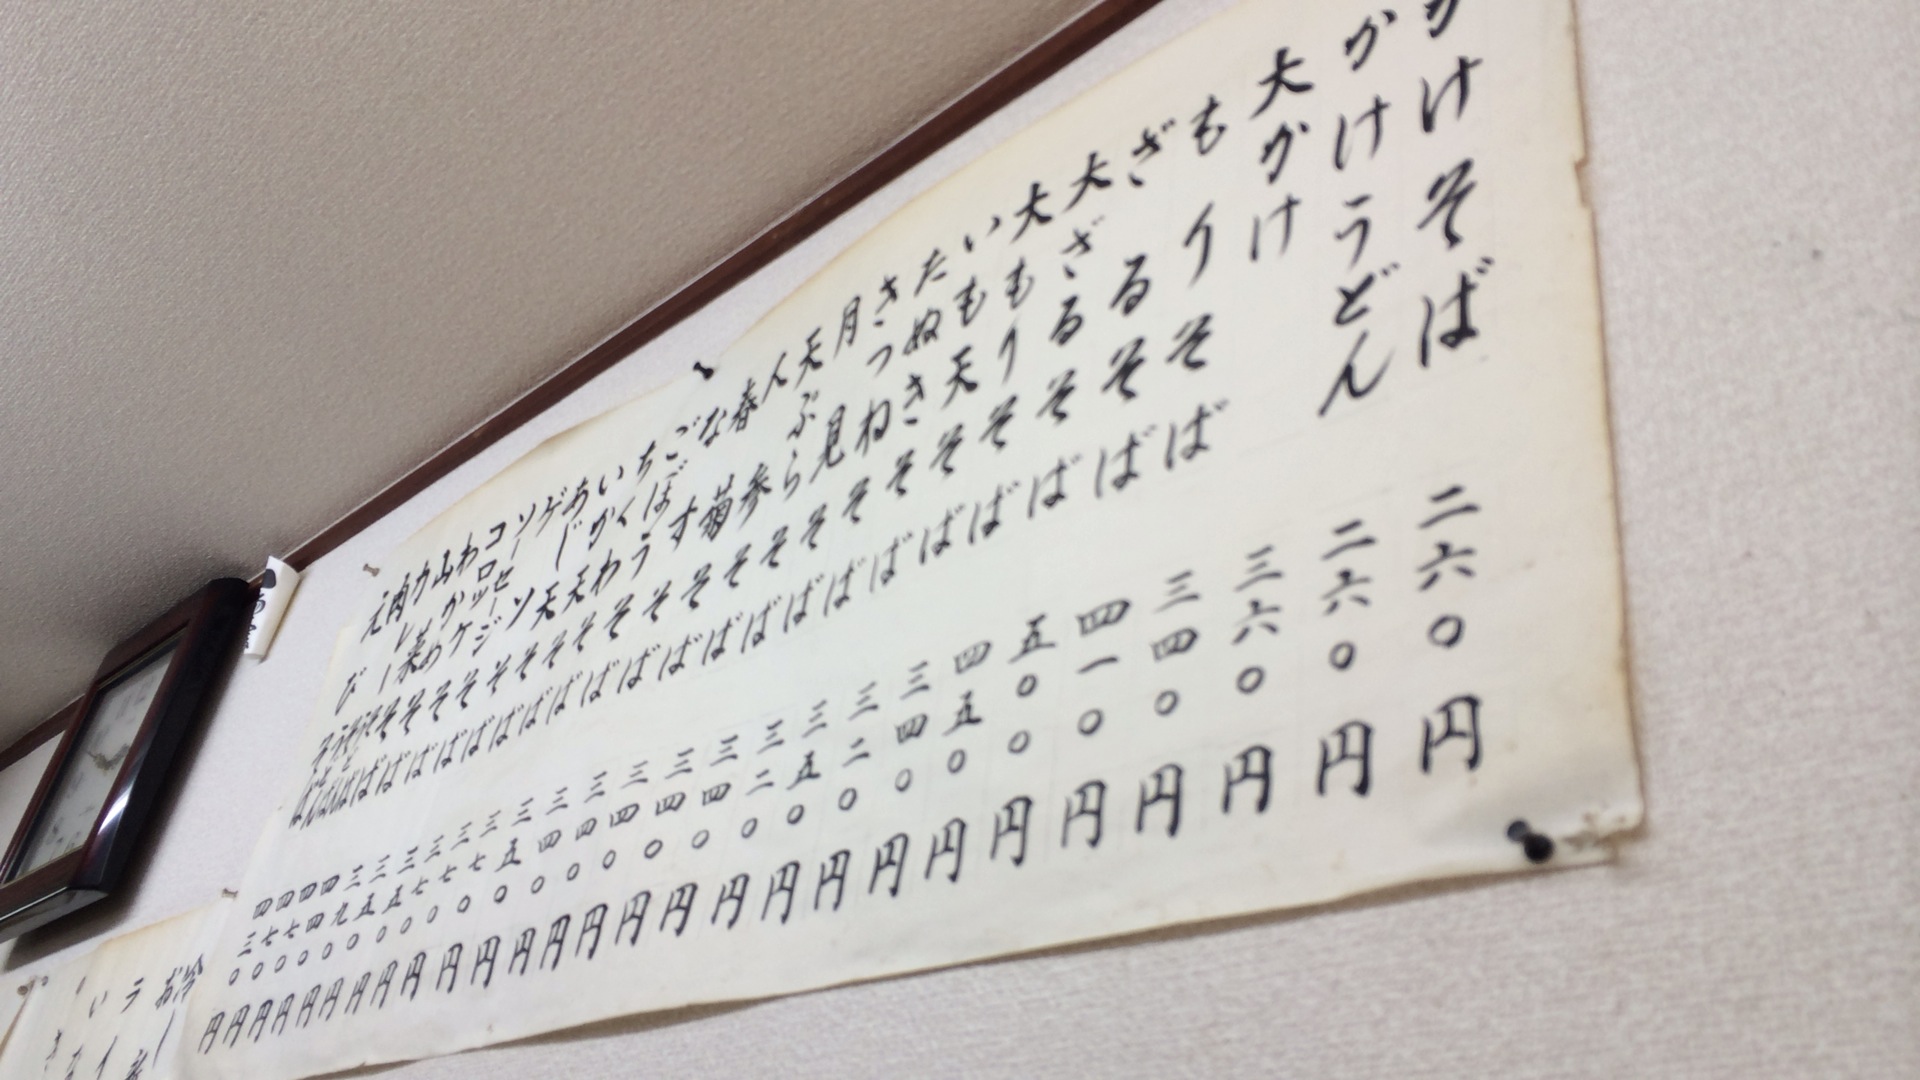 かけそば 二六〇円
かけうどん 二六〇円
大かけ 三六〇円
もりそば 三四〇円
ざるそば 四一〇円
大ざるそば 五〇〇円
大もりそば 四五〇円
いも天そば 三四〇円
たぬきそば 三二〇円
きつねそば 三五〇円
月見そば 三二〇円
天ぷらそば 三四〇円
人参そば 三四〇円
春菊そば 三四〇円
なすそば 三四〇円
ごぼうそば 三四〇円
ちくわそば 三五〇円
いか天そば 三七〇円
あじ天そば 三七〇円
ゲソ天そば 三七〇円
ソーセージそば 三五〇円
コロッケそば 三五〇円
わかめそば 三九〇円
山菜そば 四四〇円
カレーそば 四七〇円
肉そば 四七〇円
四三〇円